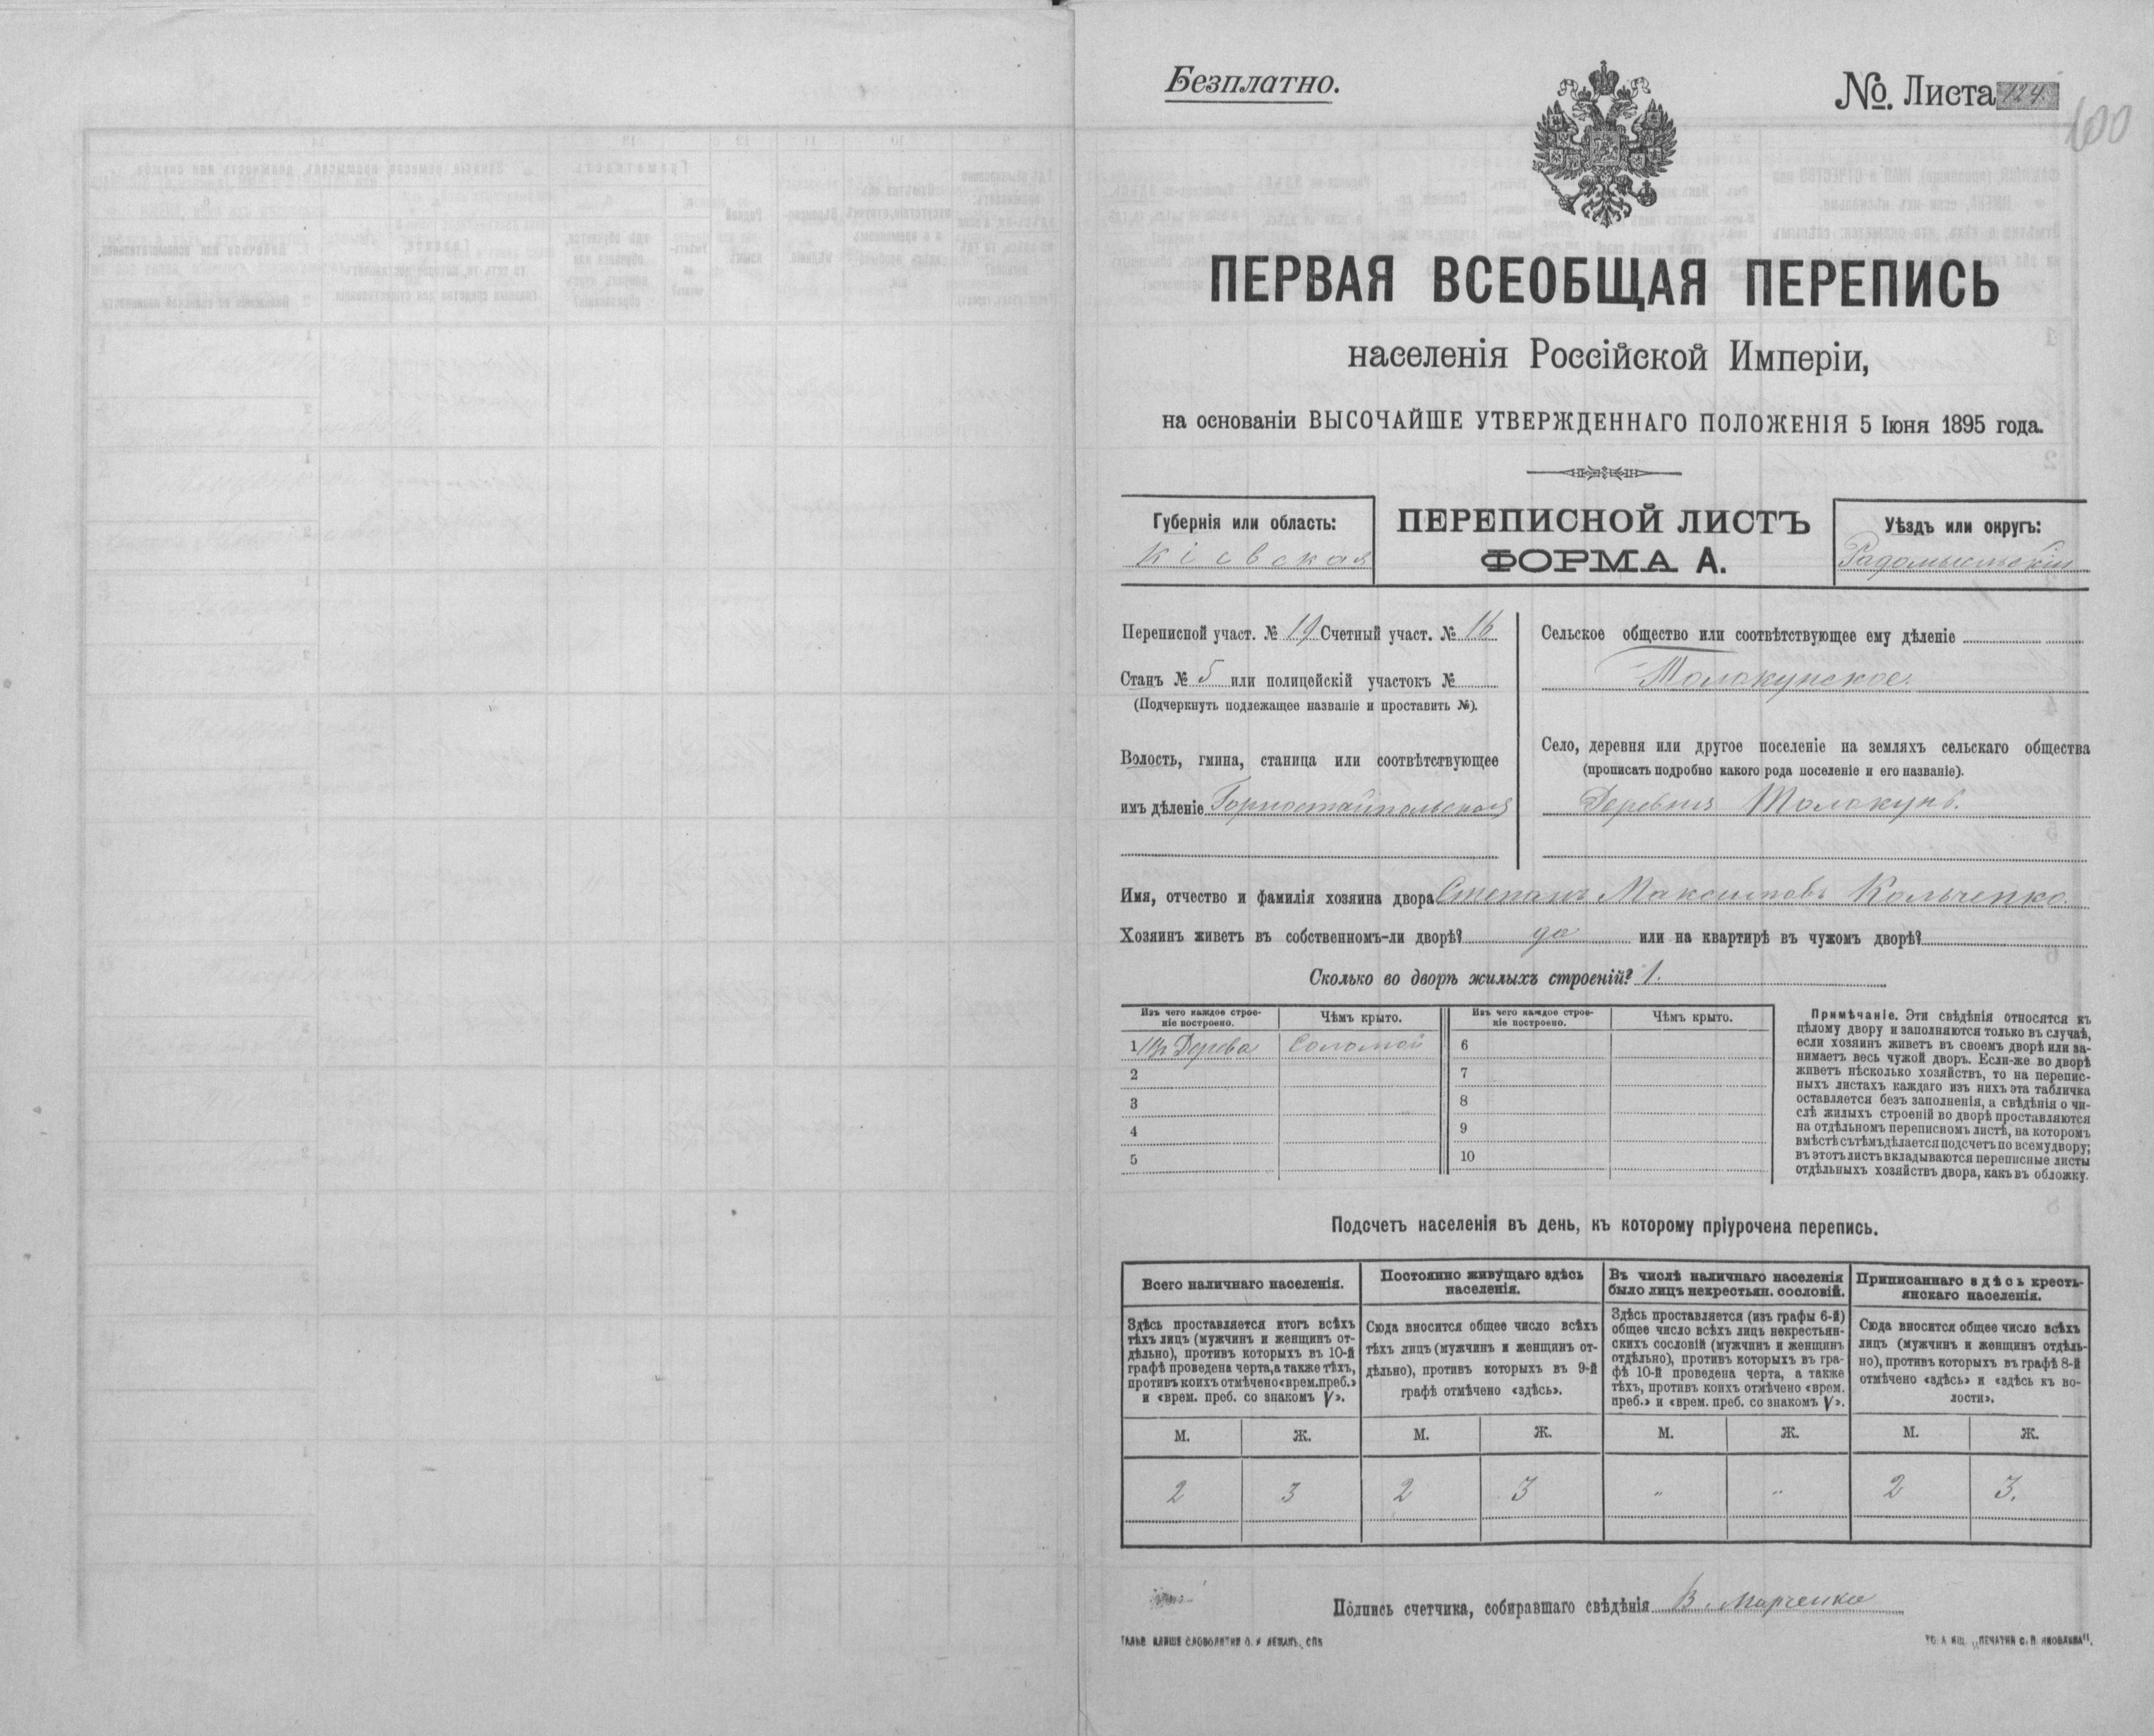 Безплатно.
№. Листа 124.
100
ПЕРВАЯ ВСЕОБЩАЯ ПЕРЕПИСЬ
населенія Россійской Имперіи,
на основаніи ВЫСОЧАЙШЕ УТВЕРЖДЕННАГО ПОЛОЖЕНІЯ 5 Іюня 1895 года.
Губернія или область:
Кіевская
ПЕРЕПИСНОЙ ЛИСТЪ
ФОРМА А.
Уѣздъ или округъ:
Радомысльскій
Переписной участ. № 19 Счетный участ. № 16
Станъ № 5 или полицейскій участокъ №
(Подчеркнуть подлежащее названіе и проставить №).
Волость, гмина, станица или соотвѣтствующее
имъ дѣленіе Горностайпольская
Сельское общество или соотвѣтствующее ему дѣленіе
Толокунское.
Село, деревня или другое поселеніе на земляхъ сельскаго общества
(прописать подробно какого рода поселеніе и его названіе).
Деревня Толокунь.
Имя, отчество и фамилія хозяина двора Степанъ Максимовъ Кольченко.
Хозяинъ живетъ въ собственномъ-ли дворѣ? да или на квартирѣ въ чужомъ дворѣ?
Сколько во дворѣ жилыхъ строеній? 1.
Изъ чего каждое строе-
ніе построено.
Чѣмъ крыто.
Изъ чего каждое строе-
ніе построено.
Чѣмъ крыто.
1 Изъ Дерева Соломой 6
2 7
3 8
4 9
5 10
Примѣчаніе. Эти свѣдѣнія относятся къ
цѣлому двору и заполняются только въ случаѣ,
если хозяинъ живетъ въ своемъ дворѣ или за-
нимаетъ весь чужой дворъ. Если-же во дворѣ
живетъ нѣсколько хозяйствъ, то на перепис-
ныхъ листахъ каждаго изъ нихъ эта табличка
оставляется безъ заполненія, а свѣдѣнія о чи-
слѣ жилыхъ строеній во дворѣ проставляются
на отдѣльномъ переписномъ листѣ, на которомъ
вмѣстѣ съ тѣмъ дѣлается подсчетъ по всему двору;
въ этотъ листъ вкладываются переписные листы
отдѣльныхъ хозяйствъ двора, какъ въ обложку.
Подсчетъ населенія въ день, къ которому пріурочена перепись.
Всего наличнаго населенія.
Здѣсь проставляется итогъ всѣхъ
тѣхъ лицъ (мужчинъ и женщинъ от-
дѣльно), противъ которыхъ въ 10-й
графѣ проведена черта, а также тѣхъ,
противъ коихъ отмѣчено «врем. преб.»
и «врем. преб. со знакомъ V».
Постоянно живущаго здѣсь
населенія.
Сюда вносится общее число всѣхъ
тѣхъ лицъ (мужчинъ и женщинъ от-
дѣльно), противъ которыхъ въ 9-й
графѣ отмѣчено «здѣсь».
Въ числѣ наличнаго населенія
было лицъ некрестьян. сословій.
Здѣсь проставляется (изъ графы 6-й)
общее число всѣхъ лицъ некрестьян-
скихъ сословій (мужчинъ и женщинъ
отдѣльно), противъ которыхъ въ гра-
фѣ 10-й проведена черта, а также
тѣхъ, противъ коихъ отмѣчено «врем.
преб.» и «врем. преб. со знакомъ V».
Приписаннаго здѣсь кресть-
янскаго населенія.
Сюда вносится общее число всѣхъ
лицъ (мужчинъ и женщинъ отдѣль-
но), противъ которыхъ въ графѣ 8-й
отмѣчено «здѣсь» и «здѣсь къ во-
лости».
М. Ж. М. Ж. М. Ж. М. Ж.
2 3 2 3 " " 2 3.
Подпись счетчика, собиравшаго свѣдѣнія В. Марченко
ГАЛЬВ. КЛИШЕ СЛОВОЛИТНИ О. И ЛЕМАНЪ, СПБ